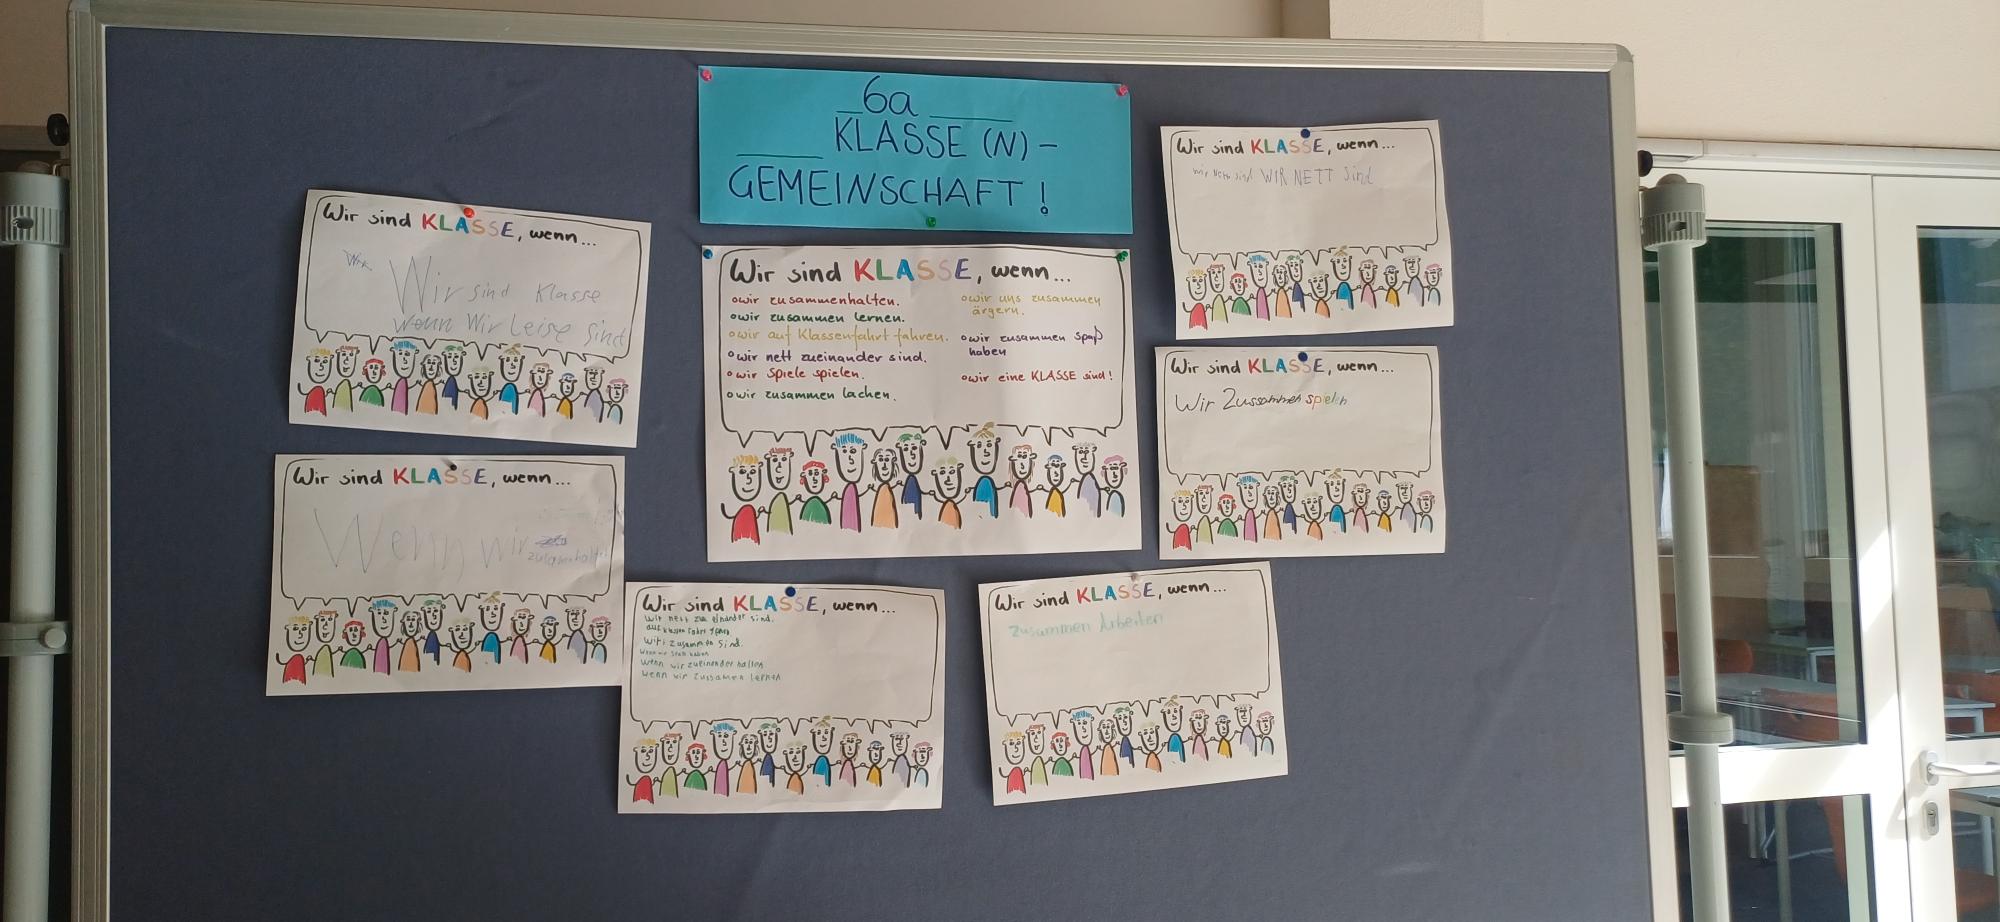 6a
KLASSE (N) –
GEMEINSCHAFT !
Wir sind KLASSE, wenn...
Wir sind Klasse
wenn Wir Leise sind
Wir sind KLASSE, wenn...
o wir zusammenhalten.
o wir zusammen lernen.
o wir auf Klassenfahrt fahren.
o wir nett zueinander sind.
o wir Spiele spielen.
o wir zusammen lachen.
o wir uns zusammen
ärgern.
o wir zusammen Spaß
haben
o wir eine KLASSE sind!
Wir sind KLASSE, wenn...
wir Nett sind WIR NETT Sind
Wir sind KLASSE, wenn...
Wir Zussammen spielen
Wir sind KLASSE, wenn...
Wenn wir
Wir sind KLASSE, wenn...
Wir nett zu einander sind.
auf klassen fahrt
zusammen sind.
Wenn wir Spaß haben
Wenn wir zueinender halten
Wenn wir zussamen lernen
Wir sind KLASSE, wenn...
Zusammen Arbeiten